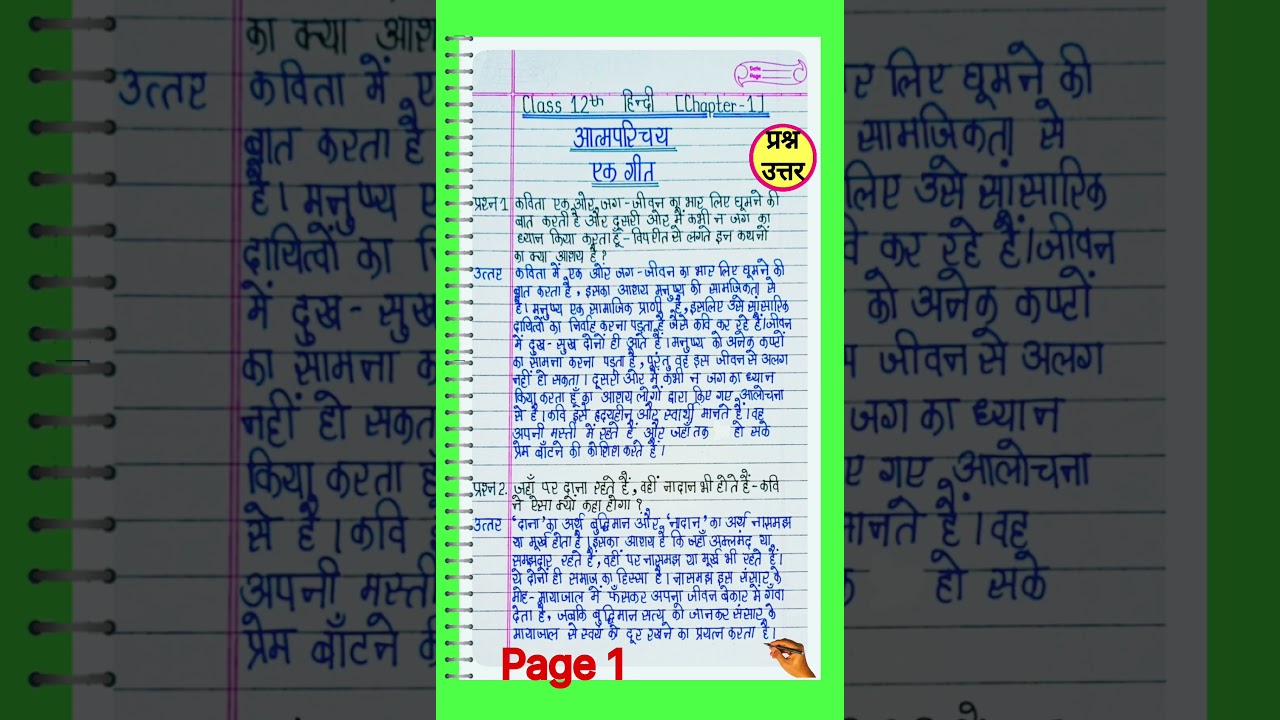 Date
Page
Class 12th हिन्दी [Chapter-1]
आत्मपरिचय
एक गीत
प्रश्न
उत्तर
प्रश्न 1 कविता एक ओर जग-जीवन का भार लिए घूमने की
बात करती है और दूसरी ओर मैं कभी न जग का
ध्यान किया करता हूँ - विपरीत से लगते इन कथनों
का क्या आशय है ?
उत्तर कविता में एक ओर जग-जीवन का भार लिए घूमने की
बात करता है, इसका आशय मनुष्य की सामजिकता से
है। मनुष्य एक सामाजिक प्राणी है, इसलिए उसे सांसारिक
दायित्वों का निर्वाह करना पड़ता है जैसे कवि कर रहे हैं।जीवन
में दुख-सुख दोनों ही आते हैं।मनुष्य को अनेक कष्टों
का सामना करना पड़ता है, परंतु वह इस जीवन से अलग
नहीं हो सकता। दूसरी ओर मैं कभी न जग का ध्यान
किया करता हूँ का आशय लोगों द्वारा किए गए आलोचना
से है।कवि इसे ह्रदयहीन और स्वार्थी मानते हैं।वह
अपनी मस्ती में रहते हैं और जहाँ तक हो सके
प्रेम बाँटने की कोशिश करते हैं।
प्रश्न 2. जहाँ पर दाना रहते हैं, वहीं नादान भी होते हैं - कवि
ने ऐसा क्यों कहा होगा ?
उत्तर 'दाना' का अर्थ बुद्धिमान और 'नादान' का अर्थ नासमझ
या मूर्ख होता है। इसका आशय है कि जहाँ अक्लमंद या
समझदार रहते हैं, वहीं पर नासमझ या मूर्ख भी रहते हैं।
ये दोनों ही समाज का हिस्सा है। नासमझ इस संसार के
मोह-मायाजाल में फँसकर अपना जीवन बेकार में गँवा
देता है, जबकि बुद्धिमान सत्य को जानकर संसार के
मायाजाल से स्वयं को दूर रखने का प्रयत्न करता है।
Page 1